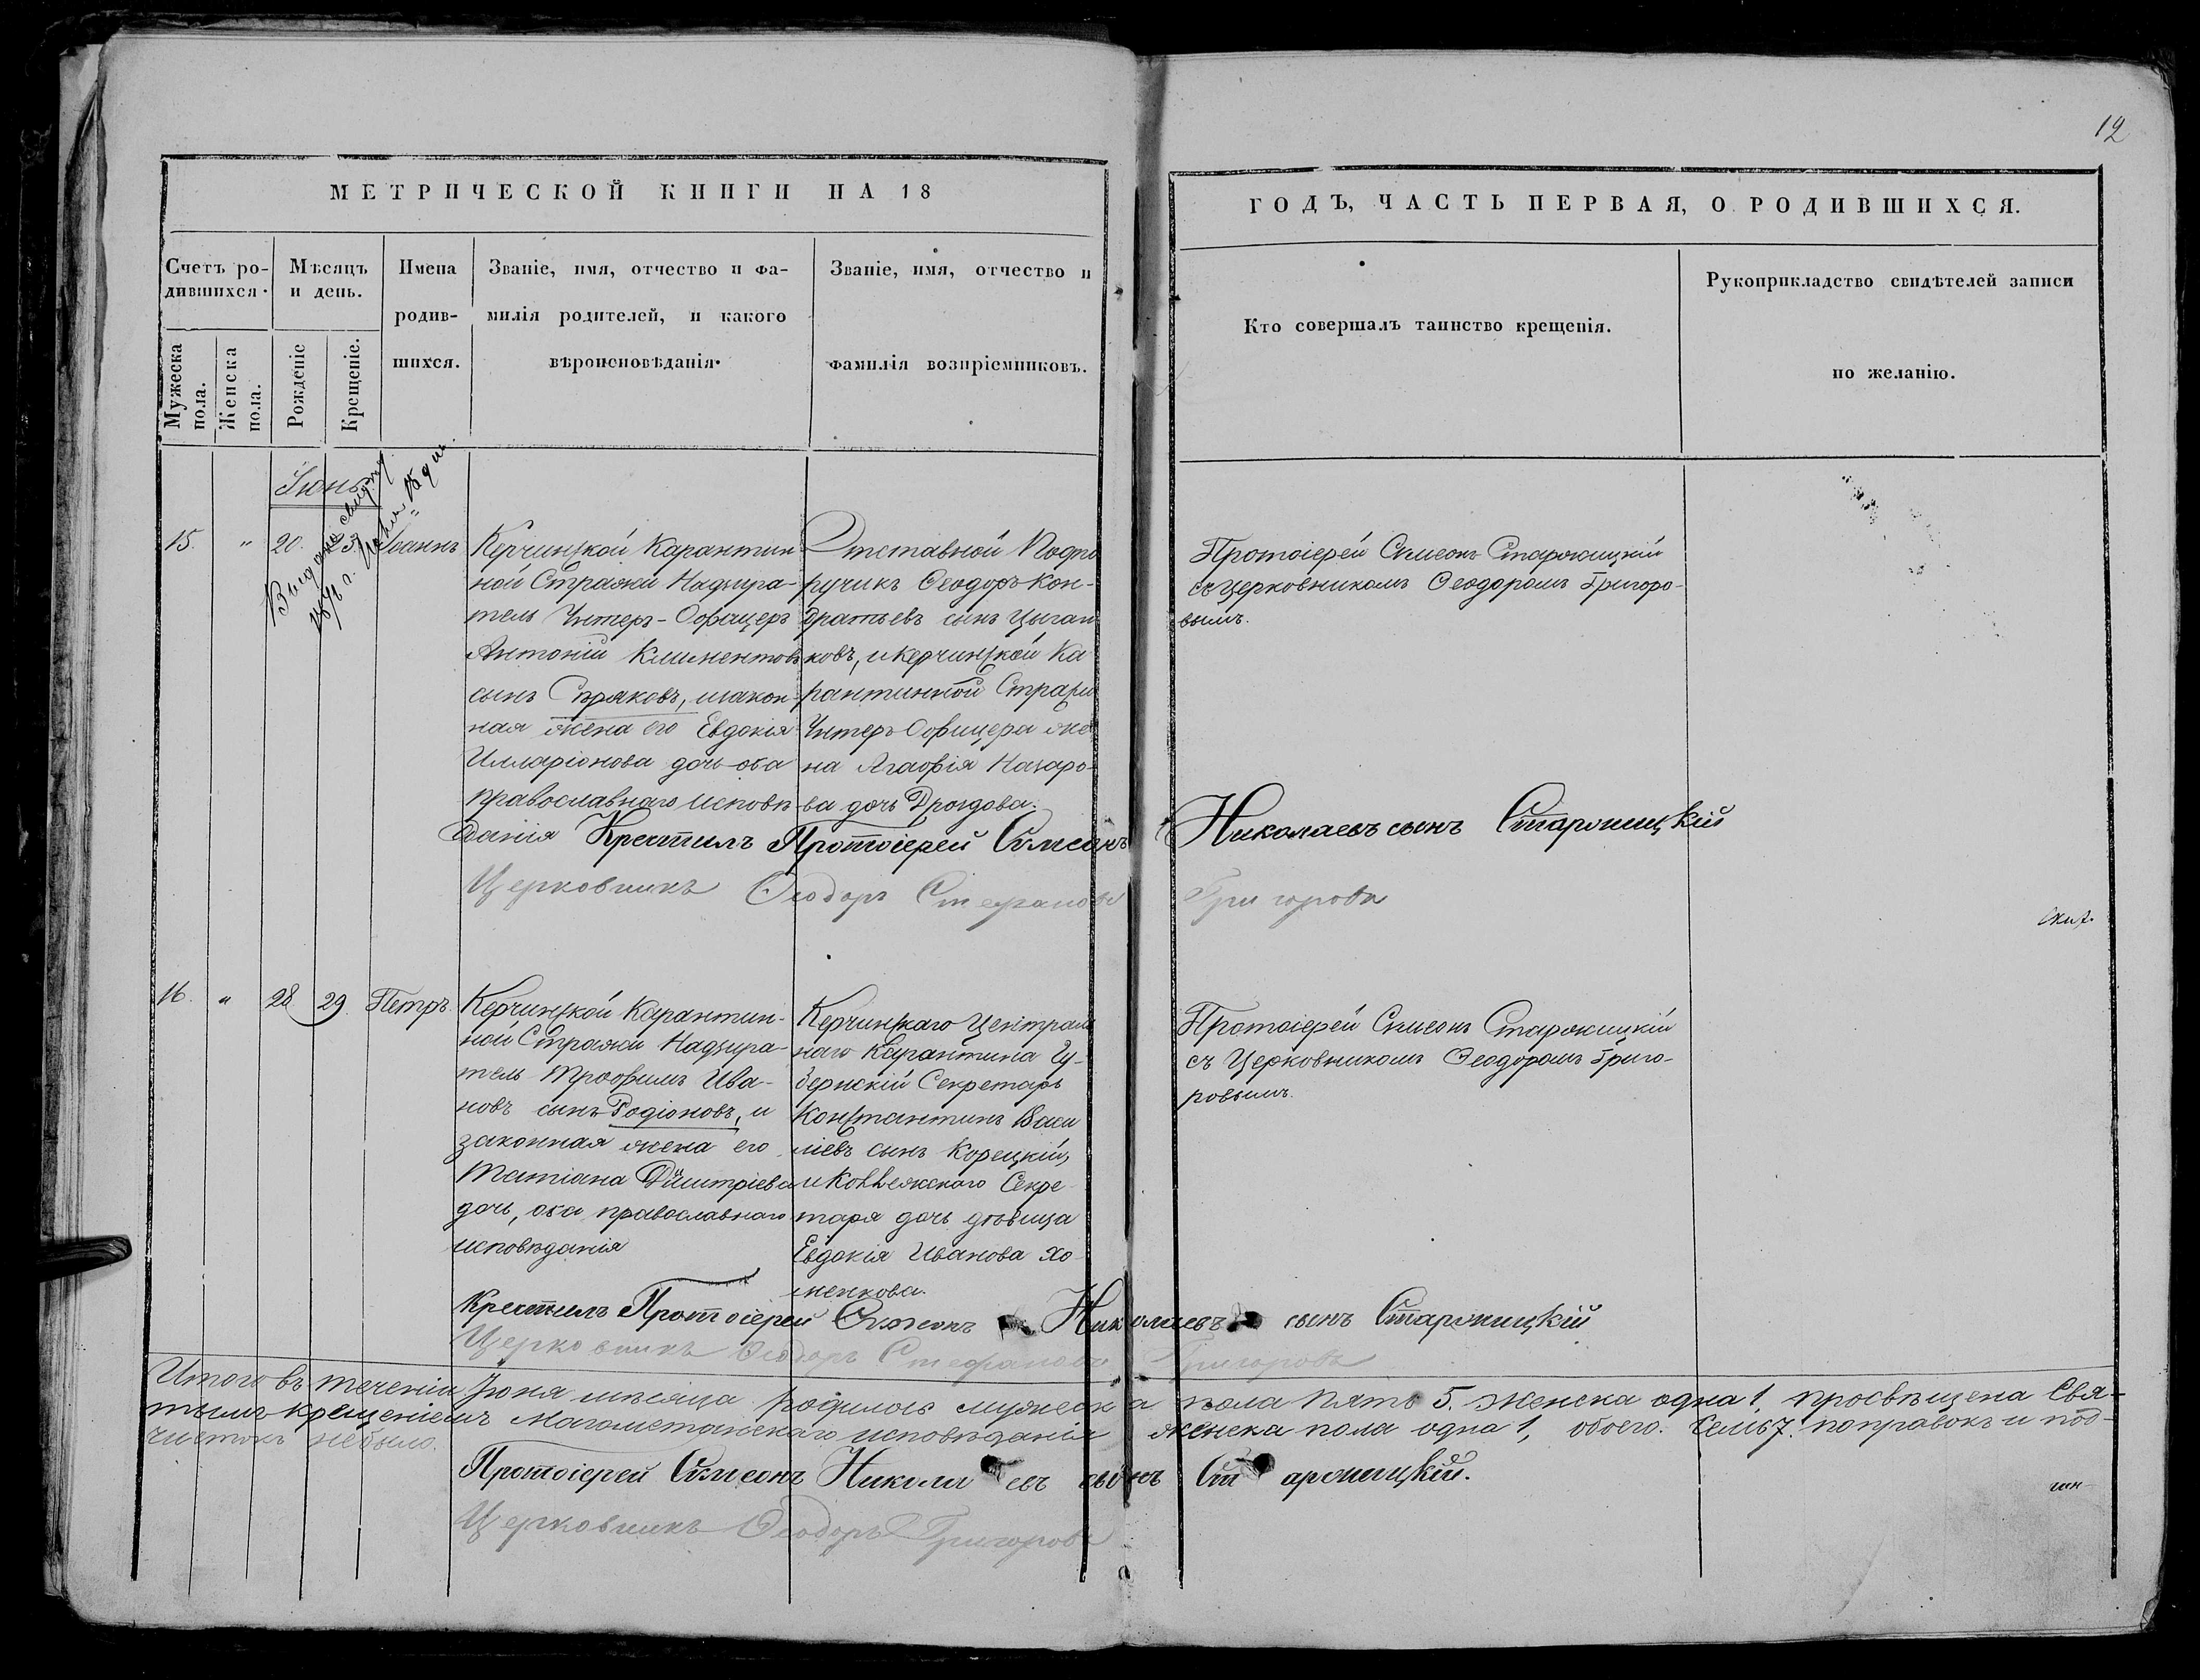 12
МЕТРИЧЕСКОЙ КНИГИ НА 18
ГОДЪ, ЧАСТЬ ПЕРВАЯ, О РОДИВШИХСЯ.
Счетъ ро-
дившихся.
Мужеска пола.
Женска пола.
Мѣсяцъ
и день.
Рожденіе
Крещеніе.
Имена
родив-
шихся.
Званіе, имя, отчество и фа-
милія родителей, и какого
вѣроисповѣданія.
Званіе, имя, отчество и
фамилія воспріемниковъ.
Кто совершалъ таинство крещенія.
Рукоприкладство свидѣтелей записи
по желанію.
Іюнь
15. " 20. 23. Іоаннъ
Керчинской Карантин
ной Стражи Надзира-
тель Унтеръ-Офицеръ
Антоній Климентовъ
сынъ Спряковъ, и закон-
ная жена его Евдокія
Илларіонова дочь оба
православнаго исповѣ-
данія
Отставной Подпо
ручикъ Ѳеодоръ Кон-
дратьевъ сынъ Цыган
ковъ, и Керчинской Ка
рантинной Стражи
Унтеръ Офицера же
на Агафія Назаро-
ва дочь Дроздова.
Протоіерей Симеонъ Старожицкій
съ Церковникомъ Ѳеодоромъ Григоро-
вымъ.
Крестилъ Протоіерей Симеонъ Николаевъ сынъ Старожицкій
Церковникъ Ѳеодоръ Стефановъ Григоровъ
16. " 28 29. Петръ.
Керчинской Карантин-
ной Стражи Надзира-
тель Трофимъ Ива-
новъ сынъ Родіоновъ, и
законная жена его
Татіана Димитріева
дочь, оба православнаго
исповѣданія
Керчинскаго Централь
наго Карантина Гу-
бернскій Секретарь
Константинъ Васи
ліевъ сынъ Корецкій,
и Коллежскаго Секре-
таря дочь дѣвица
Евдокія Иванова Хо-
менкова.
Протоіерей Симеонъ Старожицкій
съ Церковникомъ Ѳеодоромъ Григо-
ровымъ.
Крестилъ Протоіерей Симеонъ Николаевъ сынъ Старожицкій
Церковникъ Ѳеодоръ Стефановъ Григоровъ
Итого въ теченіи Іюня мѣсяца родилось мужеска пола пять 5. женска одна 1, просвѣщена Свя-
тымъ крещеніемъ Магометанскаго исповѣданія женска пола одна 1, обоего. Семь 7. поправокъ и под-
чистокъ небыло.
Протоіерей Симеонъ Николаевъ сынъ Старожицкій.
Церковникъ Ѳеодоръ Григоровъ